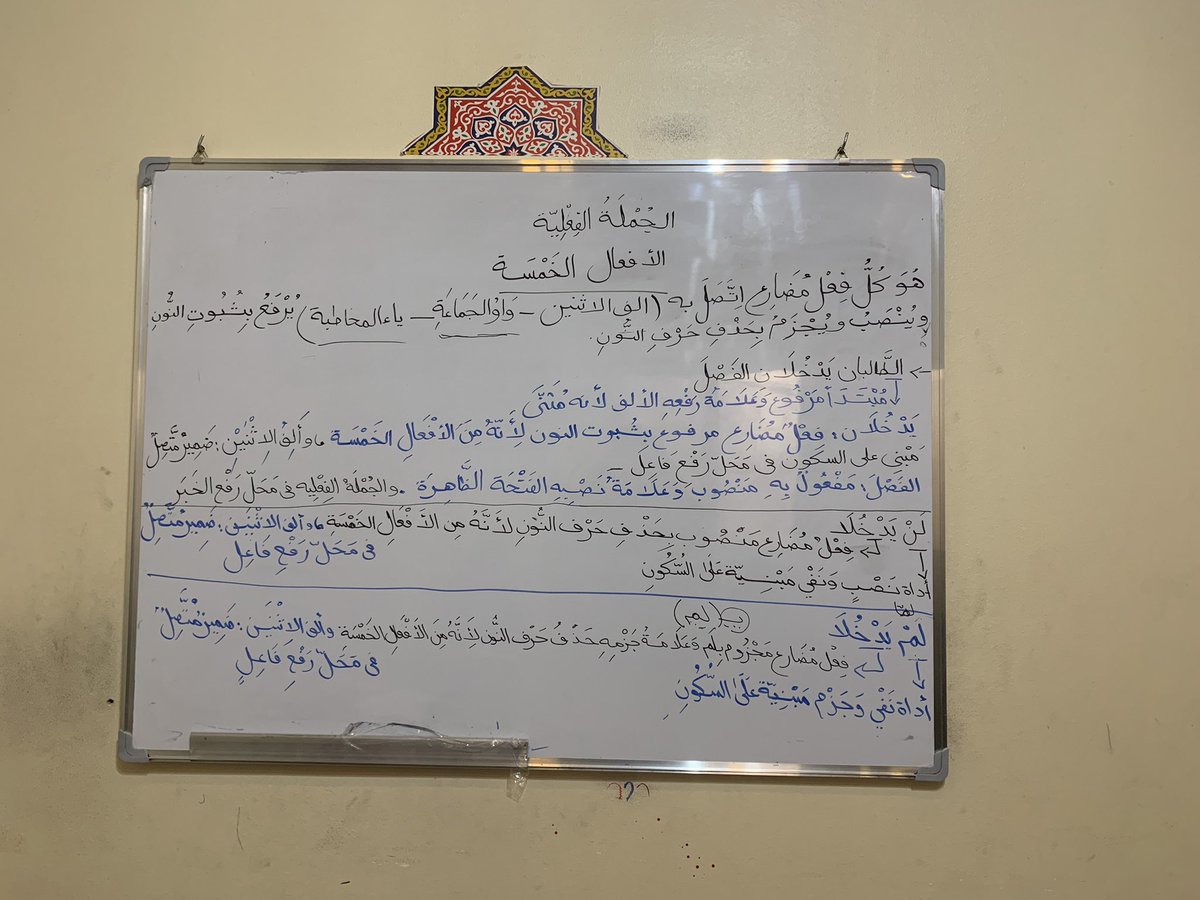 الجُمْلَةُ الفِعْلِيّة
الأفعال الخَمْسَة
هُوَ كُلُّ فِعْل مُضَارِع اِتَّصَلَ به (ألف الاثنين - وَاوُ الجَمَاعَةِ - ياء المخاطبة) يُرْفَعُ بِثُبوتِ النُّونِ
ويُنْصَبُ ويُجْزَمُ بِحَذْفِ حَرْفِ النُّونِ.
← الطَّالبان يَدْخُلَان الفَصْلَ
مُبْتَدَأ مَرْفُوع وَعَلَامَةُ رَفْعِهِ الألف لأنه مُثَنَّى
يَدْخُلَان: فِعْلٌ مُضَارِع مرفوع بِثُبوت النون لِأَنَّهُ مِنَ الأَفْعَالِ الخَمْسَة، وألِفُ الاِثْنَيْنِ: ضَمِيرٌ مُتَّصِلٌ
مَبْنِي على السكون في مَحَلّ رَفْعَ فَاعِل -
الفَصْلَ: مَفْعُولٌ بِهِ مَنْصُوب وَعَلَامَةُ نَصْبِهِ الفَتْحَة الظَّاهِرَة. والجُمْلَة الفِعْلِيه في مَحَلّ رَفْع الخَبَر
لَنْ يَدْخُلَا
فِعْلٌ مُضَارِع مَنْصُوب بِحَذْفِ حَرْف النُّونِ لأنَّهُ مِن الأَفْعَال الخَمْسَة، وألف الاثْنَيْنِ: ضَمِيرٌ مُتَّصِلٌ
في مَحَلّ رَفْعِ فَاعِل
أداة نَصْبٍ وَنَفْي مَبْنِيّة عَلَى السُّكُونِ
لَمْ يَدْخُلَا
بـ (لم)
فِعْلٌ مُضَارِع مَجْزُوم بِلَم وَعَلَامَةُ جَزْمِهِ حَذْفُ حَرْف النُّون لأَنَّهُ مِنَ الأَفْعَالِ الخَمْسَة وألف الاثْنَيْنِ: ضَمِيرٌ مُتَّصِلٌ
في مَحَلّ رَفْعِ فَاعِلٍ
أداة نَفْي وَجَزْم مَبْنِيّة عَلَى السُّكُونِ